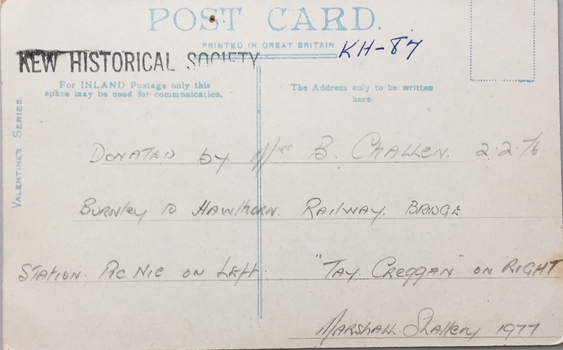 POST CARD.
PRINTED IN GREAT BRITAIN
KH-87
KEW HISTORICAL SOCIETY
For INLAND Postage only this
space may be used for communication.
The Address only to be written
here
VALENTINES SERIES.
DONATED by Mrs B. CHALLEN. 2.2.76
BURNLEY TO HAWTHORN. RAILWAY. BRIDGE
STATION. PIC NIC ON LEFT. "TAY. CREGGAN" ON RIGHT
MARSHALL 1977